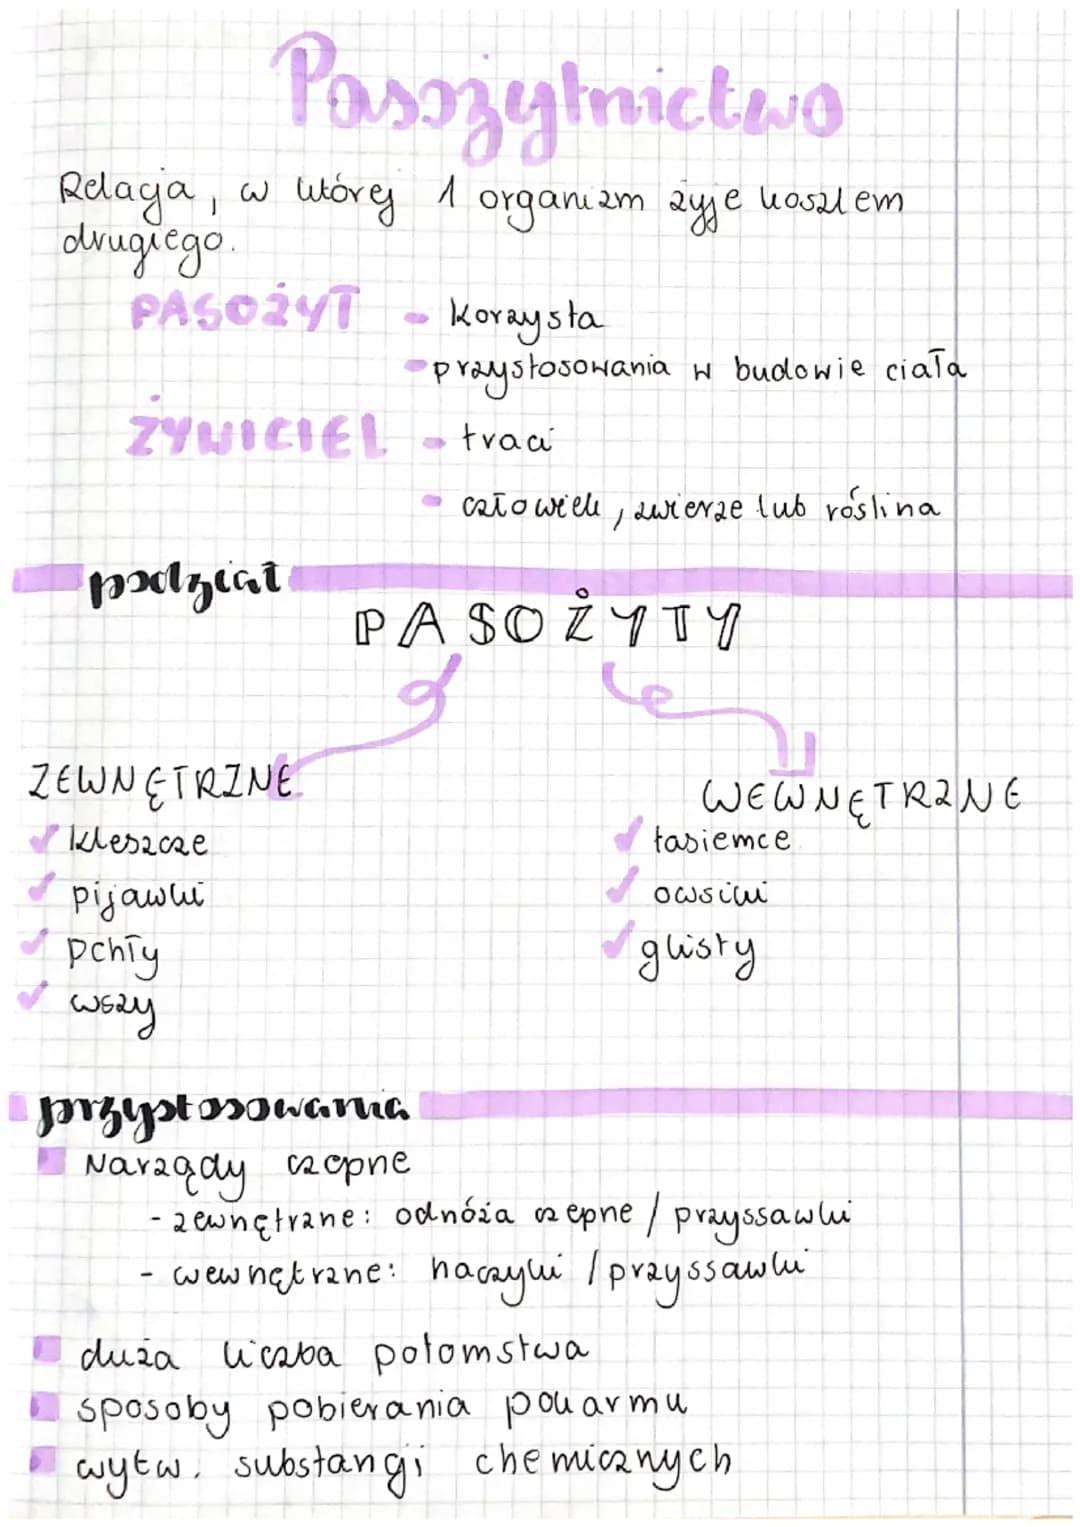 Pasożytnictwo
Relacja, w której 1 organizm żyje kosztem
drugiego.
PASOŻYT - korzysta
- przystosowania w budowie ciała
ŻYWICIEL - traci
- człowiek, zwierze lub róślina
podział
PASOŻYTY
ZEWNĘTRZNE
WEWNĘTRZNE
✓ kleszcze
✓ tasiemce
✓ pijawki
✓ owsiki
✓ pchły
✓ glisty
✓ wszy
przystosowania
Narządy czepne
- zewnętrzne: odnóża czepne / przyssawki
- wewnętrzne: haczyki / przyssawki
duża liczba potomstwa
sposoby pobierania pokarmu
wytw. substancji chemicznych